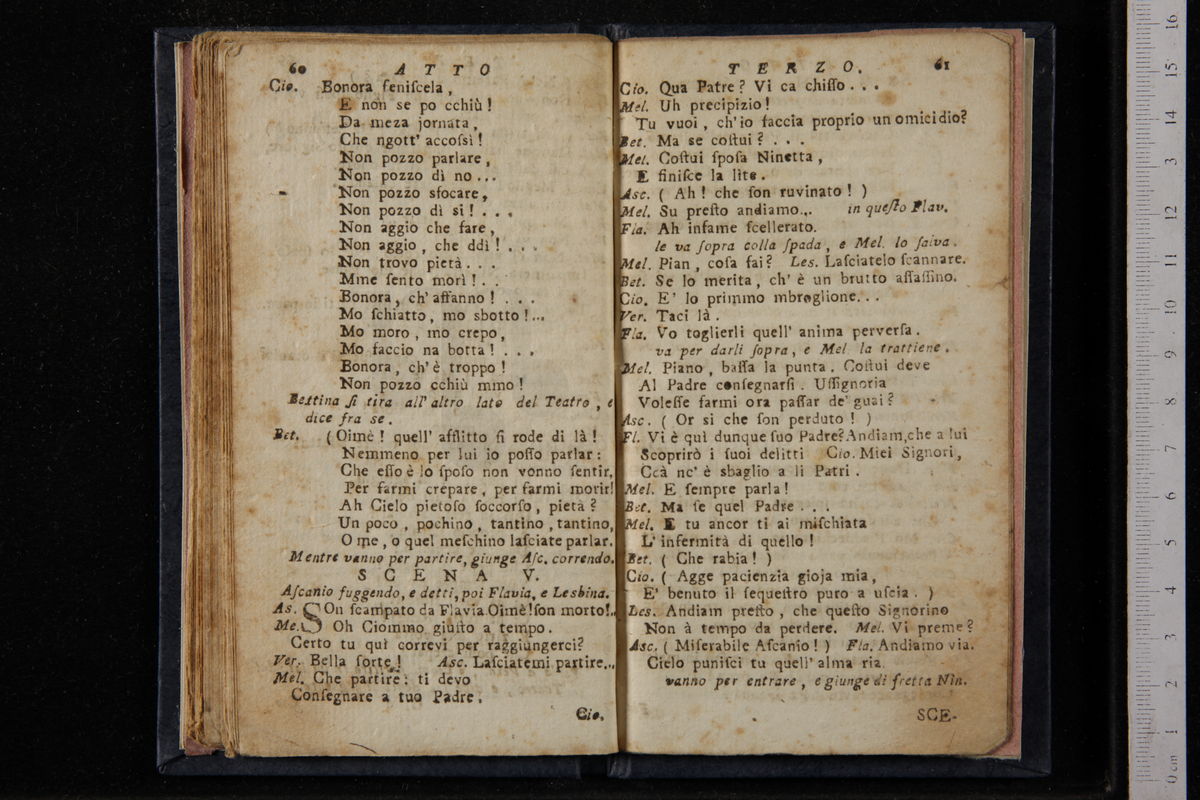 60 ATTO
Cio. Bonora feniſcela,
E non se po cchiù!
Da meza jornata,
Che ngott' accoſsì!
Non pozzo parlare,
Non pozzo dì no...
Non pozzo sfocare,
Non pozzo dì sì!...
Non aggio che fare,
Non aggio, che ddì!...
Non trovo pietà...
Mme ſento morì!..
Bonora, ch'affanno!...
Mo ſchiatto, mo sbotto!...
Mo moro, mo crepo,
Mo faccio na botta!...
Bonora, ch'è troppo!
Non pozzo cchiù mmo!
Bettina ſi tira all' altro lato del Teatro, e
dice fra se.
Bet. (Oimè! quell' afflitto ſi rode di là!
Nemmeno per lui io poſſo parlar:
Che eſſo è lo ſpoſo non vonno ſentir,
Per farmi crepare, per farmi morir!
Ah Cielo pietoſo ſoccorſo, pietà?
Un poco, pochino, tantino, tantino,
O me, o quel meſchino laſciate parlar.
Mentre vanno per partire, giunge Aſc. correndo.
SCENA V.
Aſcanio fuggendo, e detti, poi Flavia, e Lesbina.
As. SOn ſcampato da Flavia. Oimè! ſon morto!..
Me. Oh Ciommo giuſto a tempo.
Certo tu quì correvi per raggiungerci?
Ver. Bella ſorte! Asc. Laſciatemi partire...
Mel. Che partire: ti devo
Conſegnare a tuo Padre.
Cio.
TERZO. 61
Cio. Qua Patre? Vi ca chiſſo...
Mel. Uh precipizio!
Tu vuoi, ch'io faccia proprio un omicidio?
Bet. Ma se coſtui?...
Mel. Coſtui ſpoſa Ninetta,
E finiſce la lite.
Asc. (Ah! che ſon ruvinato!)
Mel. Su preſto andiamo... in queſto Flav.
Fla. Ah infame ſcellerato.
le va ſopra colla ſpada, e Mel. lo ſalva.
Mel. Pian, coſa fai? Les. Laſciatelo ſcannare.
Bet. Se lo merita, ch' è un brutto aſſaſſino.
Cio. E' lo primmo mbroglione...
Ver. Taci là.
Fla. Vo toglierli quell' anima perverſa.
va per darli ſopra, e Mel la trattiene.
Mel. Piano, baſſa la punta. Coſtui deve
Al Padre conſegnarſi. Uſſignoria
Voleſſe farmi ora paſſar de' guai?
Asc. (Or si che ſon perduto!)
Fl. Vi è quì dunque ſuo Padre? Andiam, che a lui
Scoprirò i ſuoi delitti Cio. Miei Signori,
Ccà nc' è sbaglio a li Patri.
Mel. E ſempre parla!
Bet. Ma ſe quel Padre...
Mel. E tu ancor ti ai miſchiata
L' infermità di quello!
Bet. (Che rabia!)
Cio. (Agge pacienzia gioja mia,
E' benuto il ſequeſtro puro a uſcia.)
Les. Andiam preſto, che queſto Signorino
Non à tempo da perdere. Mel. Vi preme?
Asc. (Miſerabile Aſcanio!) Fla. Andiamo via.
Cielo puniſci tu quell' alma ria.
vanno per entrare, e giunge di fretta Nin.
SCE-